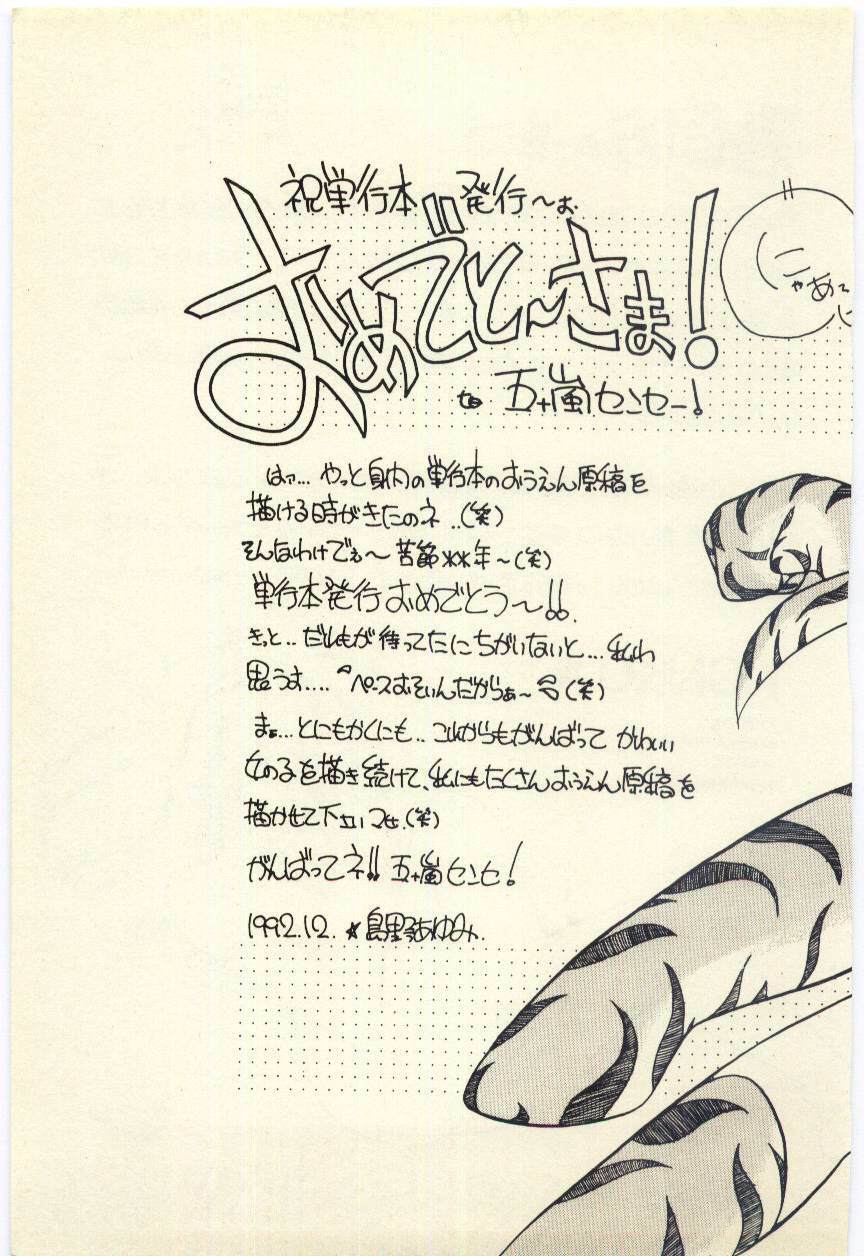 祝単行本発行〜ぉ
おめでと〜さま!
to 五十嵐センセー!
にゃあ
はァ... やっと身内の単行本のおうえん原稿を
描ける時がきたのネ..(笑)
そんなわけでぇ〜 苦節**年〜(笑)
単行本発行おめでとう〜!!
きっと.. だれもが待ってたにちがいないと... 私わ
思うす.... ペースおそいんだからぁ〜(笑)
まぁ... とにもかくにも.. これからもがんばって かわいい
女の子を描き続けて、私にもたくさんおうえん原稿を
描かせて下さいマセ.(笑)
がんばってネ!! 五十嵐センセ!
1992.12. ☆島野あゆみ.